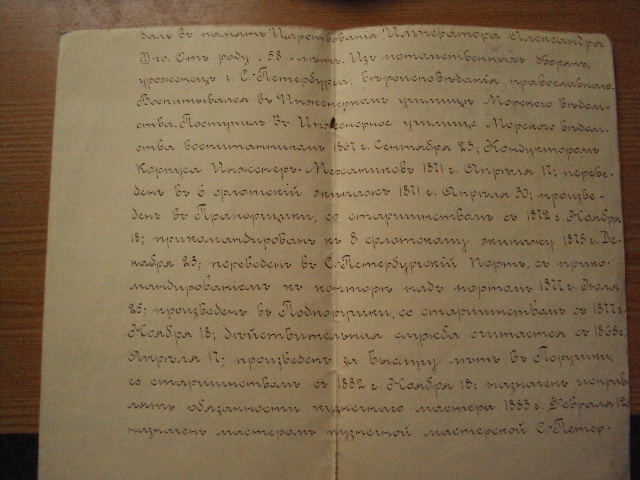 даль въ память Царствованія Императора Александра
III-го. Отъ роду 58 лѣтъ. Изъ потомственныхъ дворянъ,
уроженецъ г. С.-Петербурга; вѣроисповѣданія православнаго.
Воспитывался въ Инженерномъ училищѣ Морского вѣдом-
ства. Поступилъ въ Инженерное училище Морского вѣдом-
ства воспитанникомъ 1867 г. Сентября 23; Кондукторомъ
Корпуса Инженеръ-Механиковъ 1871 г. Апрѣля 17; переве-
денъ въ 6 флотскій экипажъ 1871 г. Апрѣля 30; произве-
денъ въ Прапорщики, со старшинствомъ съ 1872 г. Ноября
18; прикомандированъ къ 8 флотскому экипажу 1875 г. Де-
кабря 23; переведенъ въ С.-Петербургскій Портъ, съ прико-
мандированіемъ къ конторѣ надъ портомъ 1877 г. Іюля
25; произведенъ въ Подпоручики, со старшинствомъ съ 1877 г.
Ноября 18; дѣйствительная служба считается съ 1868 г.
Апрѣля 17; произведенъ за выслугу лѣтъ въ Поручики,
со старшинствомъ съ 1882 г. Ноября 18; назначенъ исправ-
лять обязанности кузнечнаго мастера 1883 г. Февраля 12
назначенъ мастеромъ кузнечной мастерской С.-Петер-